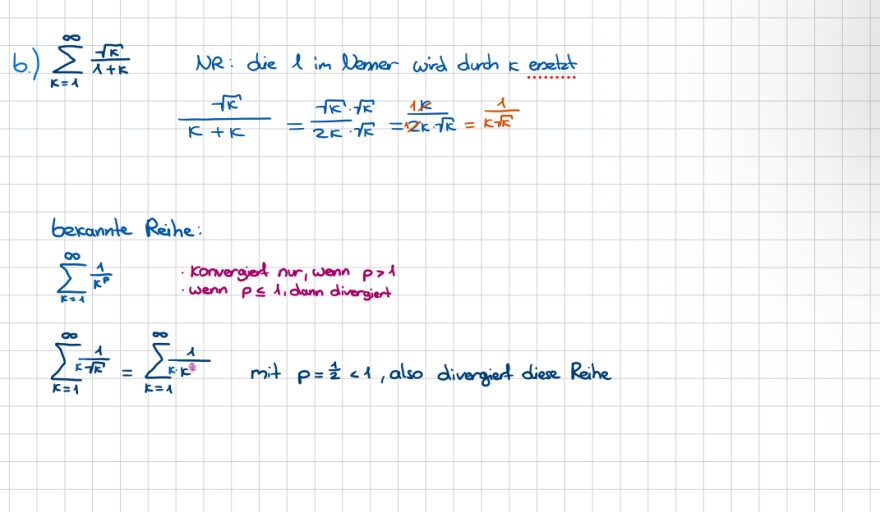 b.) ∑_{k=1}^{∞} √k/(1+k) NR: die 1 im Nenner wird durch k ersetzt
√k/(k+k) = (√k·√k)/(2k·√k) = 1k/(12k·√k) = 1/(k√k)
bekannte Reihe:
∑_{k=1}^{∞} 1/k^p · konvergiert nur, wenn p>1
· wenn p≤1, dann divergiert
∑_{k=1}^{∞} 1/(k√k) = ∑_{k=1}^{∞} 1/(k·k^{½}) mit p=½<1, also divergiert diese Reihe